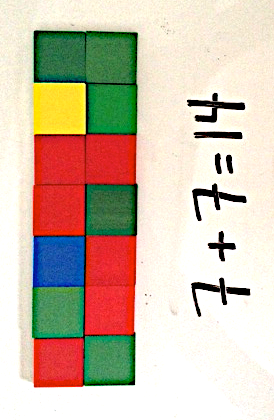 7 + 7 = 14